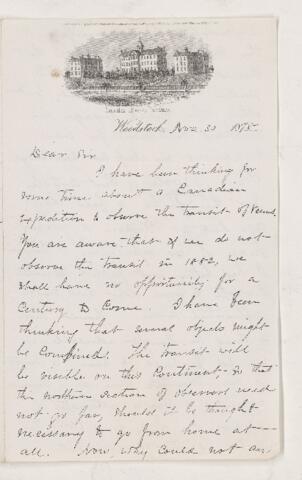 Woodstock, Nov. 30 1875.
Dear Sir
I have been thinking for
some time about a Canadian
expedition to observe the transit of Venus.
You are aware that if we do not
observe the transit in 1882, we
shall have no opportunity for a
Century to come. I have been
thinking that several objects might
be combined. The transit will
be visible on this Continent, so that
the northern section of observers need
not go far, should it be thought
necessary to go from home at
all. Now, why could not an